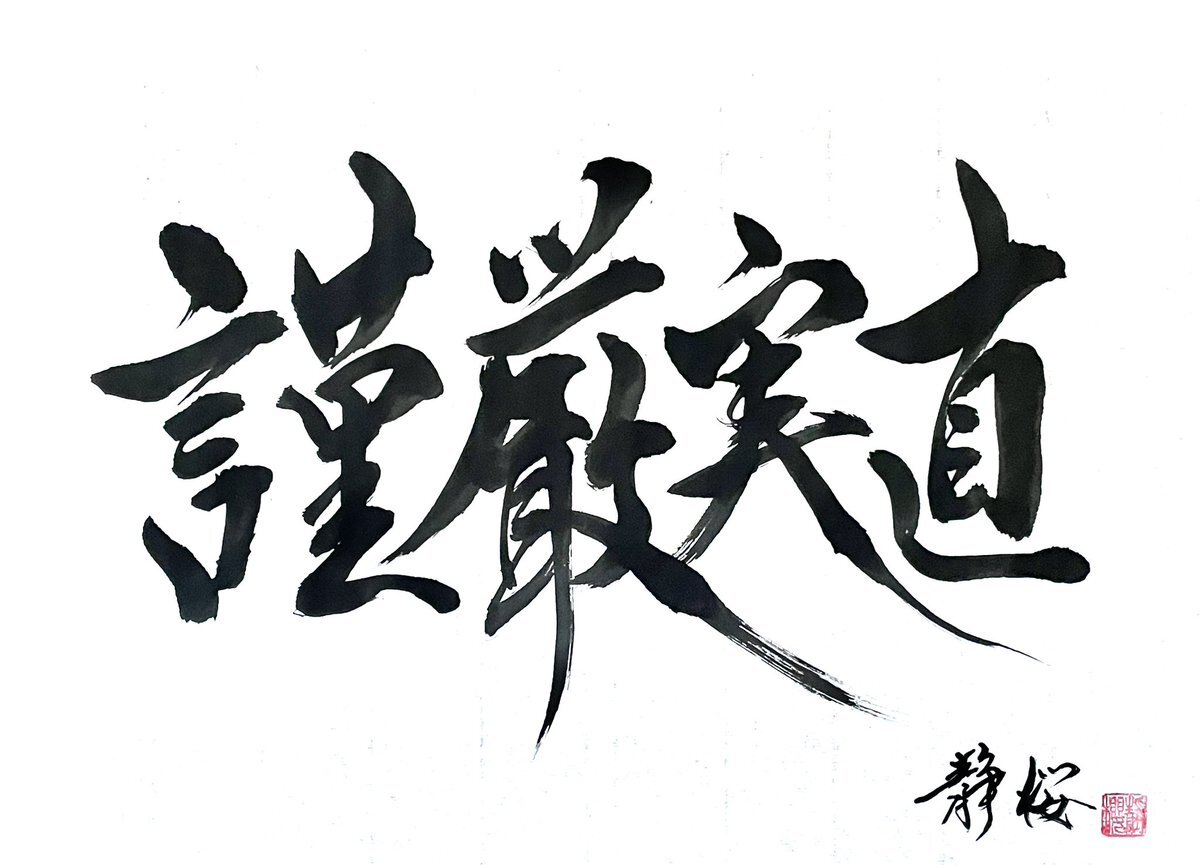 謹厳実直
静桜